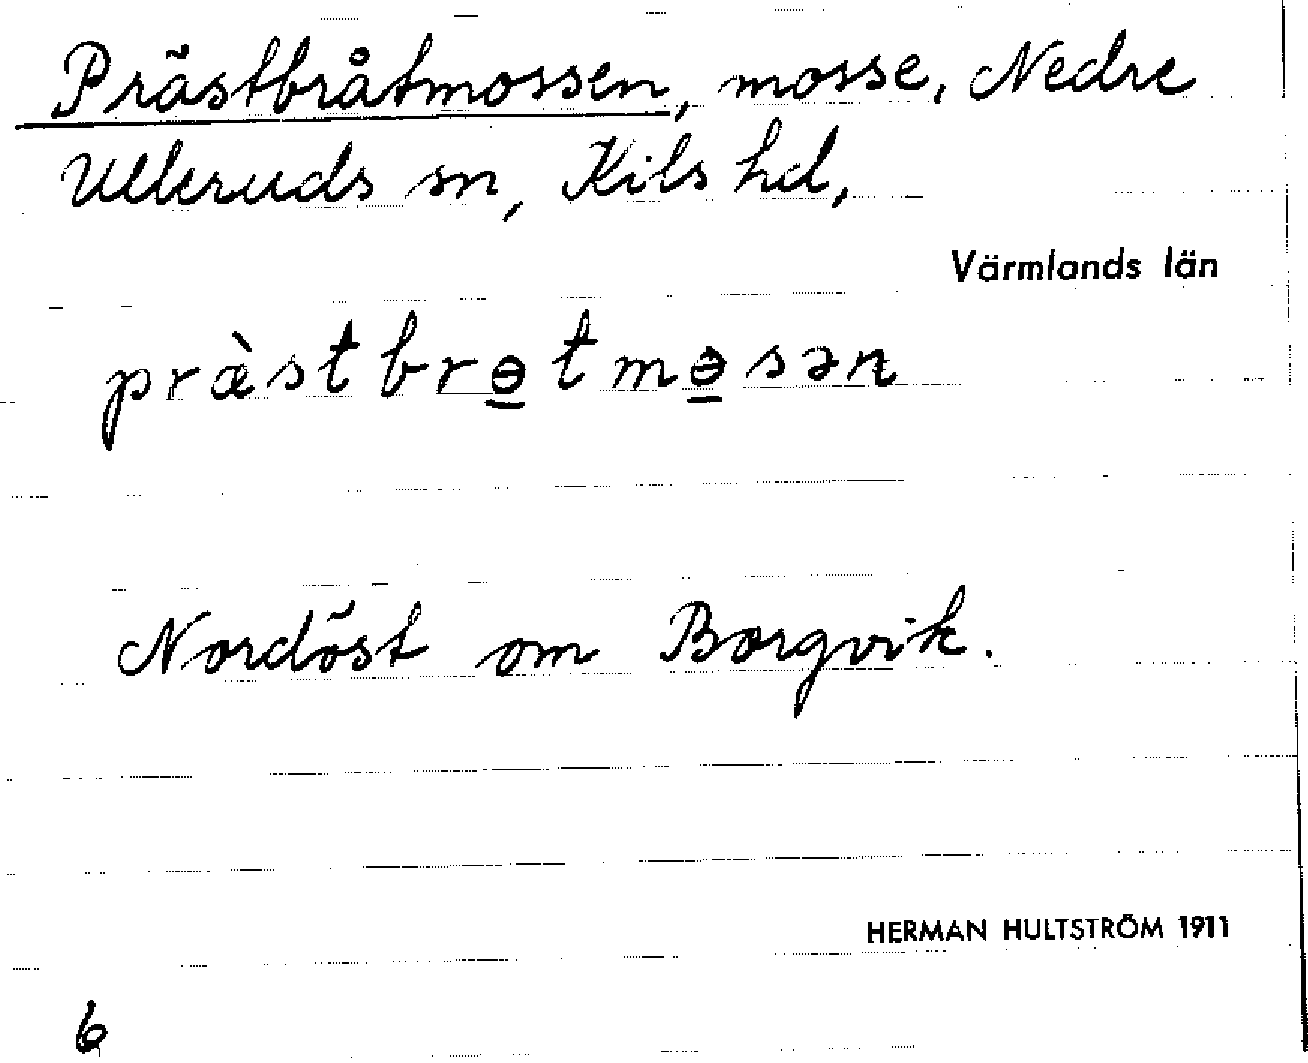 Prästbråtmossen, mosse, Nedre
Ulleruds sn, Kils hd,
Värmlands län
præ̀stbrɵ̲tmɵ̲sən
Nordöst om Borgvik.
HERMAN HULTSTRÖM 1911
6